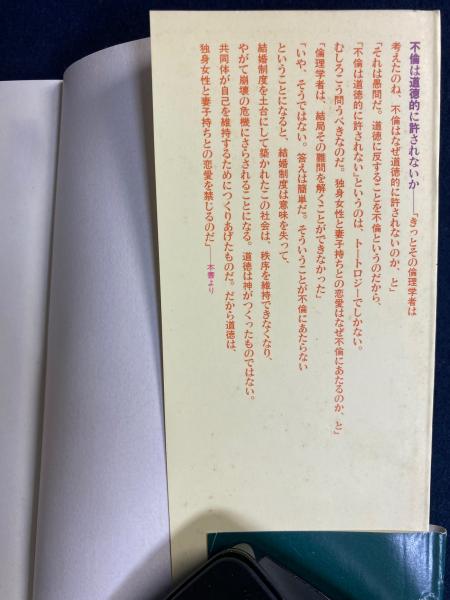 不倫は道徳的に許されないか――「きっとその倫理学者は
考えたのね、不倫はなぜ道徳的に許されないのか、と」
「それは愚問だ。道徳に反することを不倫というのだから、
『不倫は道徳的に許されない』というのは、トートロジーでしかない。
むしろこう問うべきなのだ。独身女性と妻子持ちとの恋愛はなぜ不倫にあたるのか、と」
「倫理学者は、結局その難問を解くことができなかった」
「いや、そうではない。答えは簡単だ。そういうことが不倫にあたらない
ということになると、結婚制度は意味を失って、
結婚制度を土台にして築かれたこの社会は、秩序を維持できなくなり、
やがて崩壊の危機にさらされることになる。道徳は神がつくったものではない。
共同体が自己を維持するためにつくりあげたものだ。だから道徳は、
独身女性と妻子持ちとの恋愛を禁じるのだ」――本書より